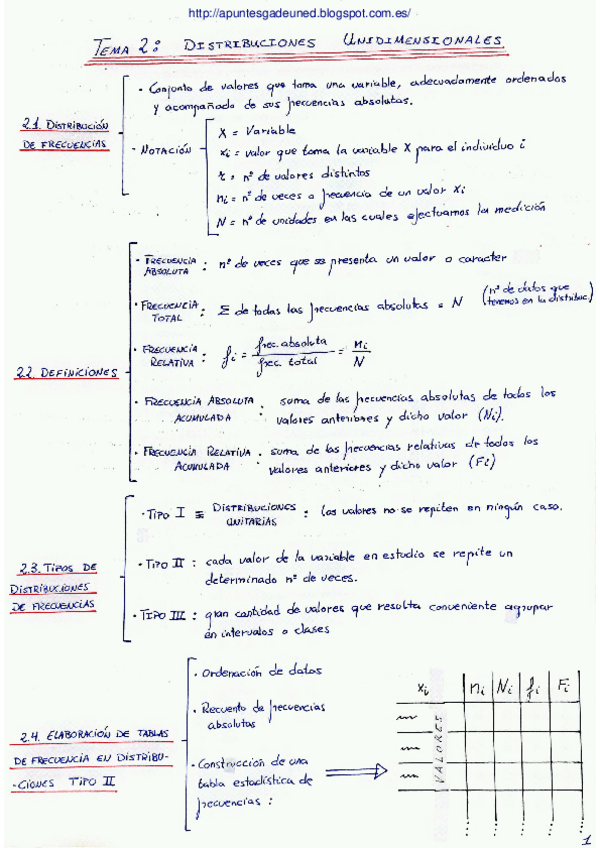 http://apuntesgadeuned.blogspot.com.es/
TEMA 2: DISTRIBUCIONES UNIDIMENSIONALES
2.1. DISTRIBUCIÓN
DE FRECUENCIAS
· Conjunto de valores que toma una variable, adecuadamente ordenados
y acompañado de sus frecuencias absolutas.
· NOTACIÓN
X = Variable
xi = valor que toma la variable X para el individuo i
r = nº de valores distintos
ni = nº de veces o frecuencia de un valor xi
N = nº de unidades en las cuales efectuamos la medición
2.2. DEFINICIONES
· FRECUENCIA
ABSOLUTA : nº de veces que se presenta un valor o caracter
· FRECUENCIA
TOTAL : Σ de todas las frecuencias absolutas = N (nº de datos que
tenemos en la distribuc)
· FRECUENCIA
RELATIVA : fi = frec. absoluta / frec. total = ni / N
· FRECUENCIA ABSOLUTA
ACUMULADA : suma de las frecuencias absolutas de todos los
valores anteriores y dicho valor (Ni).
· FRECUENCIA RELATIVA
ACUMULADA : suma de las frecuencias relativas de todos los
valores anteriores y dicho valor (Fi)
2.3. TIPOS DE
DISTRIBUCIONES
DE FRECUENCIAS
· TIPO I ≡ DISTRIBUCIONES
UNITARIAS : los valores no se repiten en ningún caso.
· TIPO II : cada valor de la variable en estudio se repite un
determinado nº de veces.
· TIPO III : gran cantidad de valores que resulta conveniente agrupar
en intervalos o clases
2.4. ELABORACIÓN DE TABLAS
DE FRECUENCIA EN DISTRIBU-
-CIONES TIPO II
· Ordenación de datos
· Recuento de frecuencias
absolutas
· Construcción de una
tabla estadística de
frecuencias :
xi ni Ni fi Fi
VALORES
1